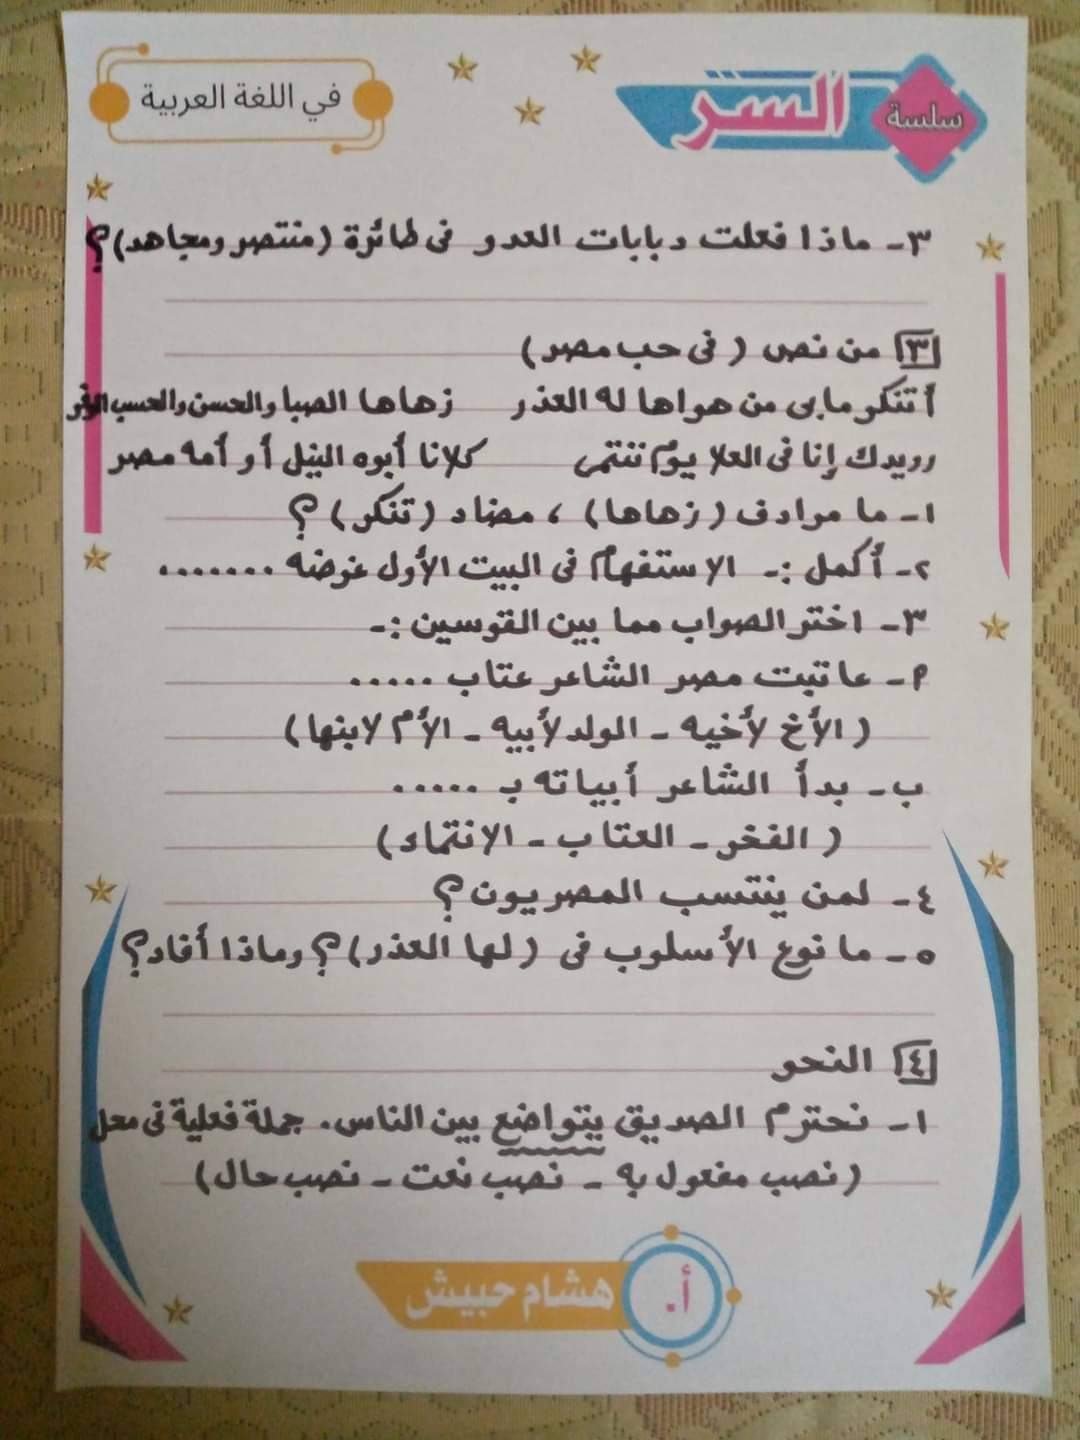 سلسة السر
في اللغة العربية
٣- ماذا فعلت دبابات العدو فى طائرة (منتصر ومجاهد)؟
٣ من نص (فى حب مصر)
أتنكر ما بى من هواها له العذر زهاها الصبا والحسن والحسب الوفر
رويدك إنا فى العلا يوم ننتمى كلانا أبوه النيل أو أمه مصر
١- ما مرادف (زهاها)، مضاد (تنكر)؟
٢- أكمل :- الاستفهام فى البيت الأول غرضه .......
٣- اختر الصواب مما بين القوسين :-
٩- عاتبت مصر الشاعر عتاب .....
(الأخ لأخيه - الولد لأبيه - الأم لابنها)
ب- بدأ الشاعر أبياته بـ .....
(الفخر - العتاب - الانتماء)
٤- لمن ينتسب المصريون؟
٥- ما نوع الأسلوب فى (لها العذر)؟ وماذا أفاد؟
٤ النحو
١- نحترم الصديق يتواضع بين الناس. جملة فعلية فى محل
(نصب مفعول به - نصب نعت - نصب حال)
أ. هشام حبيش